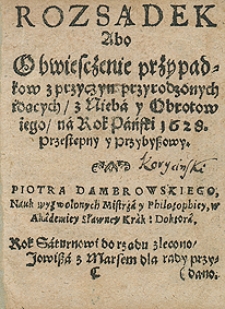 ROZSADEK
Abo
Obwieśćżenie prżypad-
kow z przyczyn przyrodzonych
idących / z Niebá y Obrotow
iego / ná Rok Páński 1628.
Przestępny y Przybyßowy.
Koryciński
PIOTRA DAMBROWSKIEGO,
Nauk wyzwolonych Mistrzá y Philosophiey, w
Akádemiey sławney Krák: Doktorá.
Rok Sáturnowi do rządu zlecono /
Jowißá z Marsem dla rády przy-
dano.